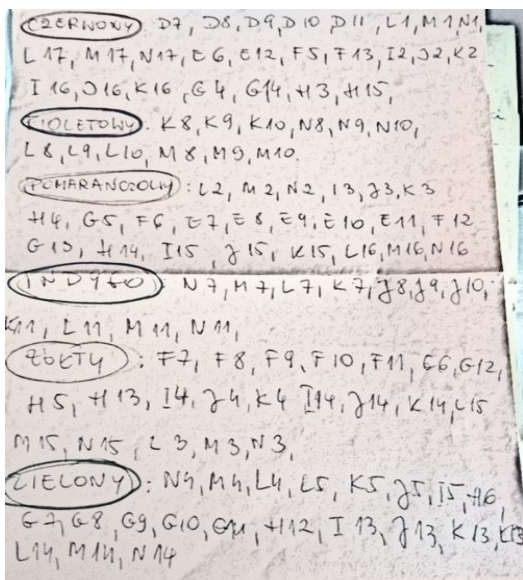 CZERWONY: D7, D8, D9, D10 D11, L1, M1, N1,
L17, M17, N17, E6, E12, F5, F13, I2, J2, K2
I16, J16, K16, G4, G14, H3, H15,
FIOLETOWY: K8, K9, K10, N8, N9, N10,
L8, L9, L10, M8, M9, M10.
POMARAŃCZOWY: L2, M2, N2, I3, J3, K3
H4, G5, F6, E7, E8, E9, E10, E11, F12
G13, H14, I15, J15, K15, L16, M16, N16
INDYGO: N7, M7, L7, K7, J8, J9, J10,
K11, L11, M11, N11,
ŻÓŁTY: F7, F8, F9, F10, F11, G6, G12,
H5, H13, I4, J4, K4 I14, J14, K14, L15
M15, N15, L3, M3, N3,
ZIELONY: N4, M4, L4, L5, K5, J5, I5, H6,
G7, G8, G9, G10, G11, H12, I13, J13, K13, K13
L14, M14, N14